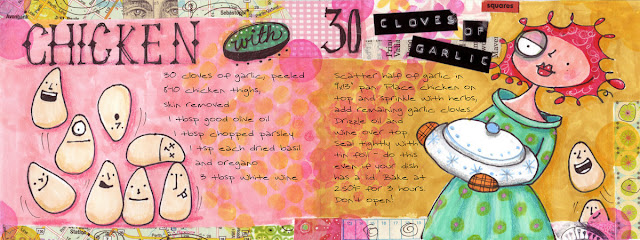 CHICKEN
with
30
CLOVES OF
GARLIC
squares
30 cloves of garlic, peeled
8-10 chicken thighs,
skin removed
1 tbsp good olive oil
1 tbsp chopped parsley
1 tsp each dried basil
and oregano
3 tbsp white wine
Scatter half of garlic in
9x13" pan. Place chicken on
top and sprinkle with herbs,
add remaining garlic cloves.
Drizzle oil and
wine over top.
Seal tightly with
tin foil - do this
even if your dish
has a lid! Bake at
250°F for 3 hours.
Don't open!